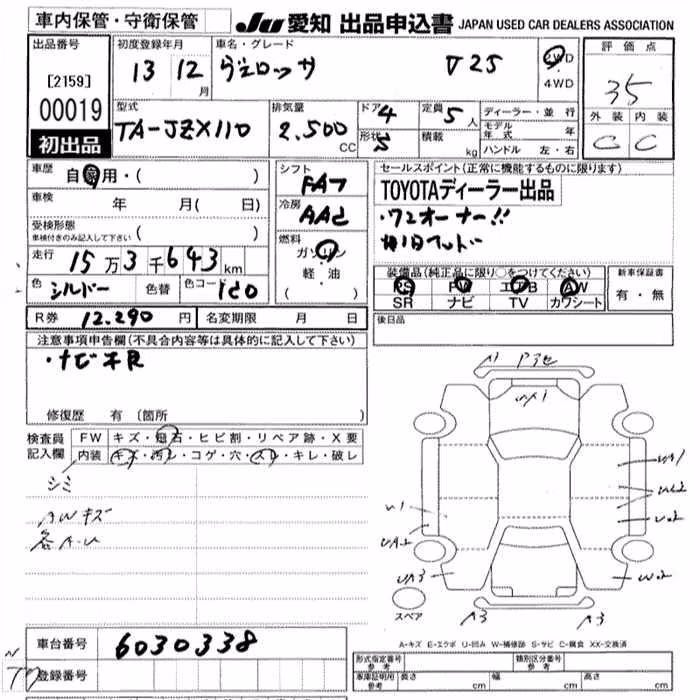 車内保管・守衛保管
JU 愛知 出品申込書 JAPAN USED CAR DEALERS ASSOCIATION
出品番号
[2159]
00019
初出品
初度登録年月 13 12 月
車名・グレード ヴェロッサ V25
2WD
4WD
評価点
35
外装 内装
C C
型式 TA-JZX110
排気量 2.500 CC
ドア 4
形状 S
定員 5 人
積載 kg
ディーラー・並行
モデル年式 年
ハンドル 左・右
車歴 自家用・( )
車検 年 月( 日)
受検形態
車検付きのみ記入して下さい ( )
走行 15 万 3 千 643 km
色 シルバー 色替 色コード 1C0
シフト FAT
冷房 AAC
燃料
ガソリン
・軽・油
( )
セールスポイント(正常に機能するものに限ります)
TOYOTAディーラー出品
・ワンオーナー!!
装備品(純正品に限り○をつけてください)
PS PW エアB AW
SR ナビ TV カワシート
新車保証書
有・無
R券 12.290 円 名変期限 月 日
後日品
注意事項申告欄(不具合内容等は具体的に記入して下さい)
・ナビ不良
修復歴 有 (箇所 )
検査員
記入欄
FW キズ・飛石・ヒビ割・リペア跡・X要
内装 キズ・汚れ・コゲ・穴・スレ・キレ・破レ
シミ
AWキズ
各A.U
A Pアセ
UA2
UA3
A3
A3
スペア
A-キズ E-エクボ U-凹み W-補修跡 S-サビ C-腐食 XX-交換済
車台番号 6030338
登録番号
形式指定番号
参考
類別区分番号
参考
車庫証明用
参考
長さ cm 幅 cm 高さ cm